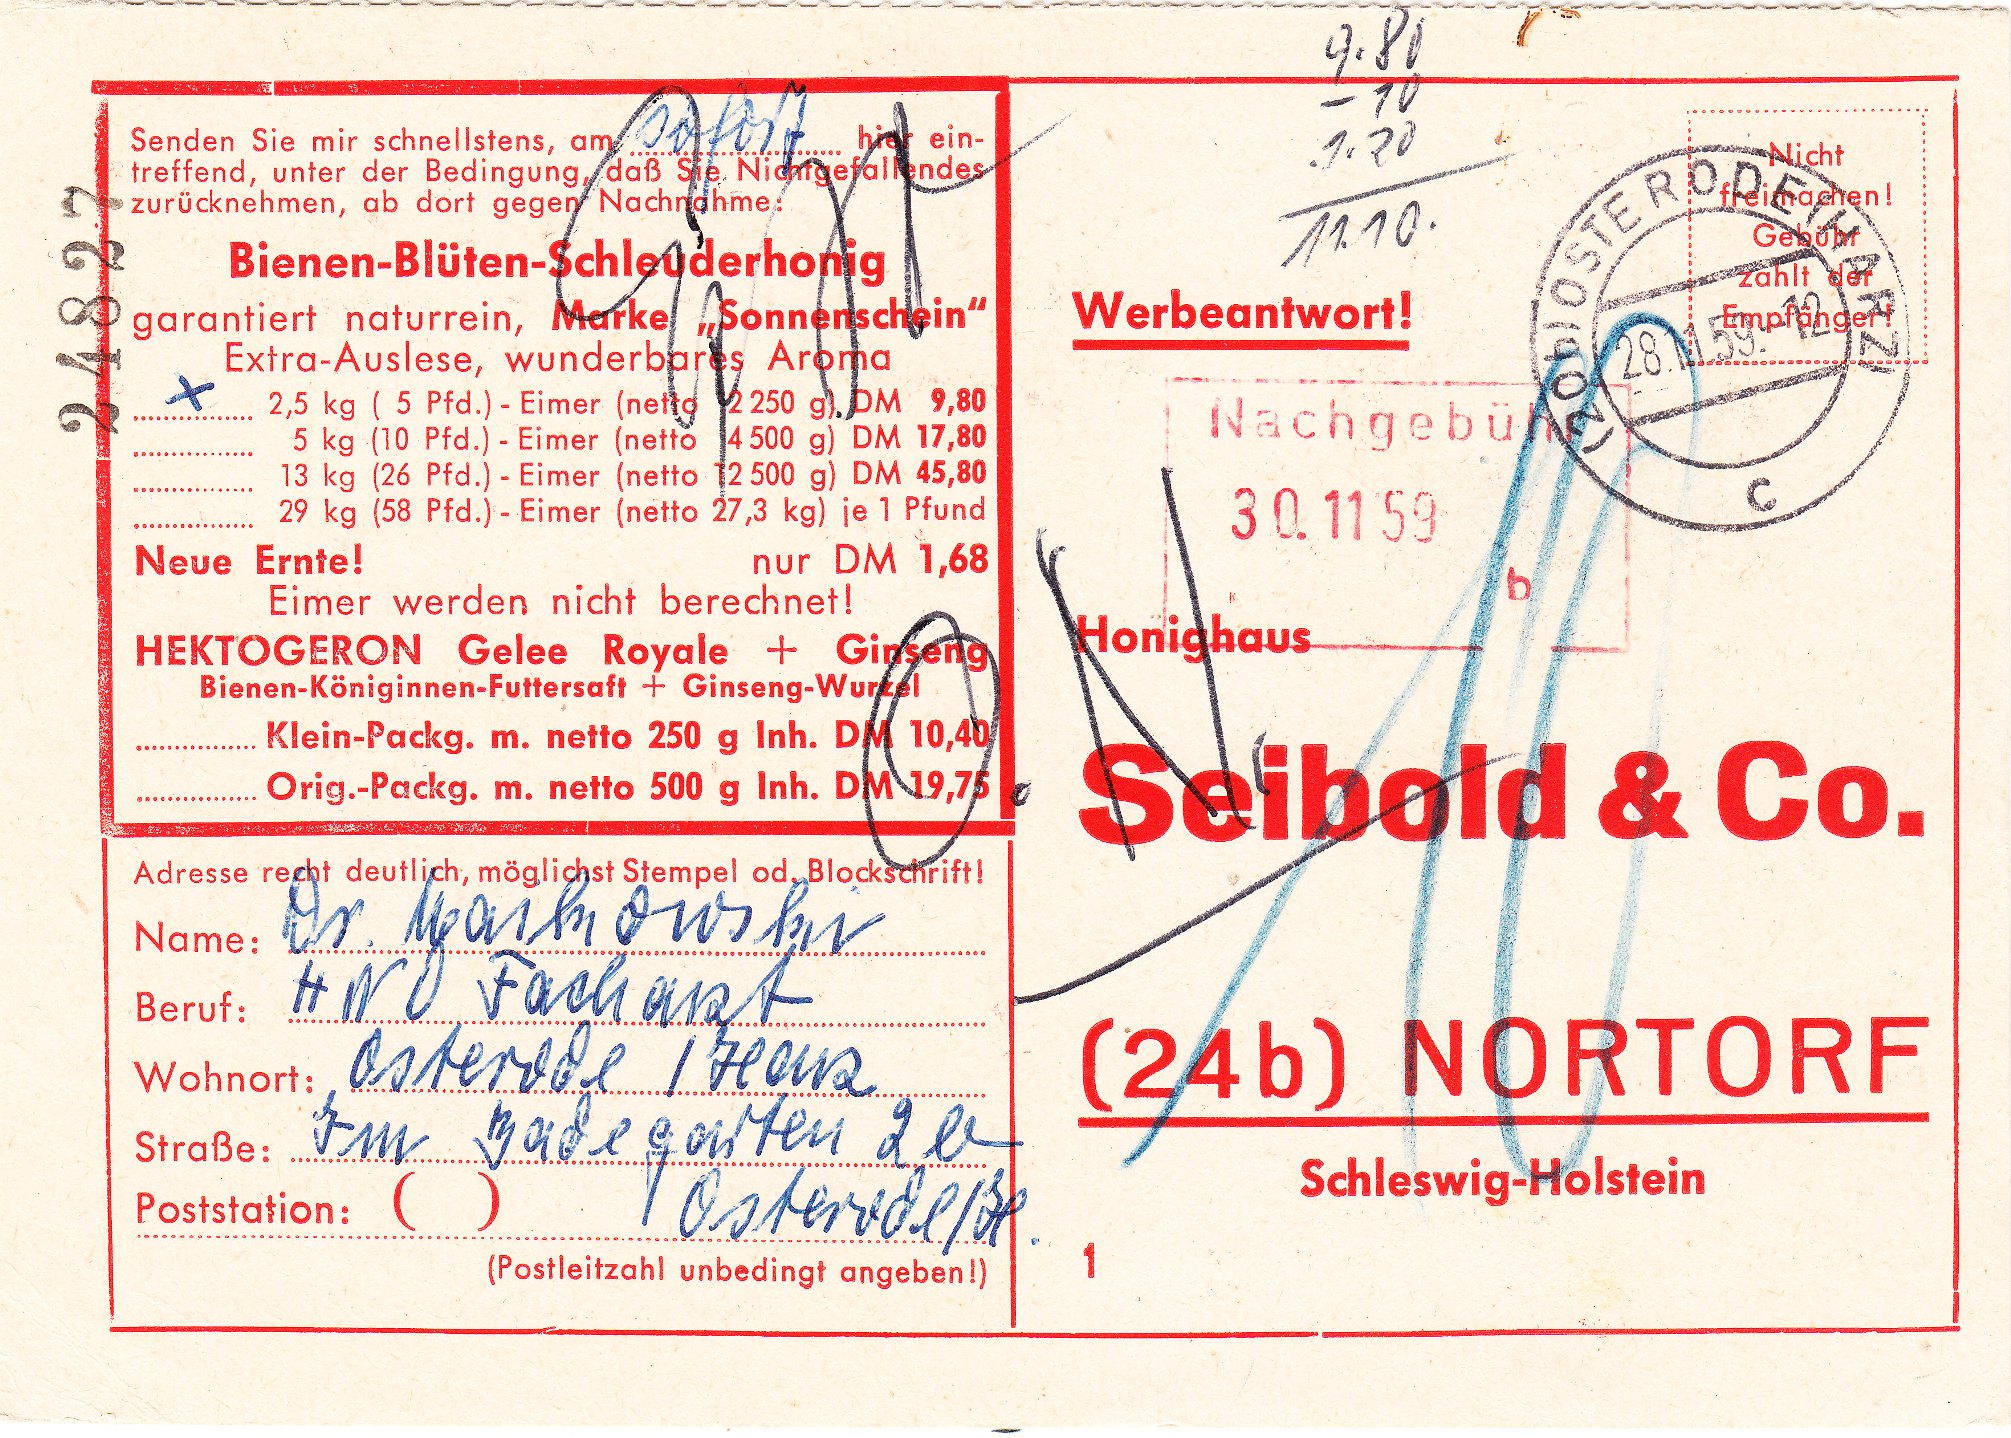 Senden Sie mir schnellstens, am sofort hier ein-
treffend, unter der Bedingung, daß Sie Nichtgefallendes
zurücknehmen, ab dort gegen Nachnahme:
Bienen-Blüten-Schleuderhonig
garantiert naturrein, Marke „Sonnenschein“
Extra-Auslese, wunderbares Aroma
x 2,5 kg ( 5 Pfd.) - Eimer (netto 2 250 g) DM 9,80
5 kg (10 Pfd.) - Eimer (netto 4 500 g) DM 17,80
13 kg (26 Pfd.) - Eimer (netto 12 500 g) DM 45,80
29 kg (58 Pfd.) - Eimer (netto 27,3 kg) je 1 Pfund
Neue Ernte! nur DM 1,68
Eimer werden nicht berechnet!
HEKTOGERON Gelee Royale + Ginseng
Bienen-Königinnen-Futtersaft + Ginseng-Wurzel
Klein-Packg. m. netto 250 g Inh. DM 10,40
Orig.-Packg. m. netto 500 g Inh. DM 19,75
24827
Adresse recht deutlich, möglichst Stempel od. Blockschrift!
Name: Dr.
Beruf: HNO Facharzt
Wohnort: Osterode / Harz
Straße: Im Badegarten 2
Poststation: ( ) Osterode/H.
(Postleitzahl unbedingt angeben!)
9.80
- 10
1.20
11.10.
Nicht
freimachen!
Gebühr
zahlt der
Empfänger!
(20b) OSTERODE (HARZ)
28.11.59.-12
c
Werbeantwort!
Nachgebühr
30.11 59
b
Honighaus
N.
Seibold & Co.
(24b) NORTORF
Schleswig-Holstein
1